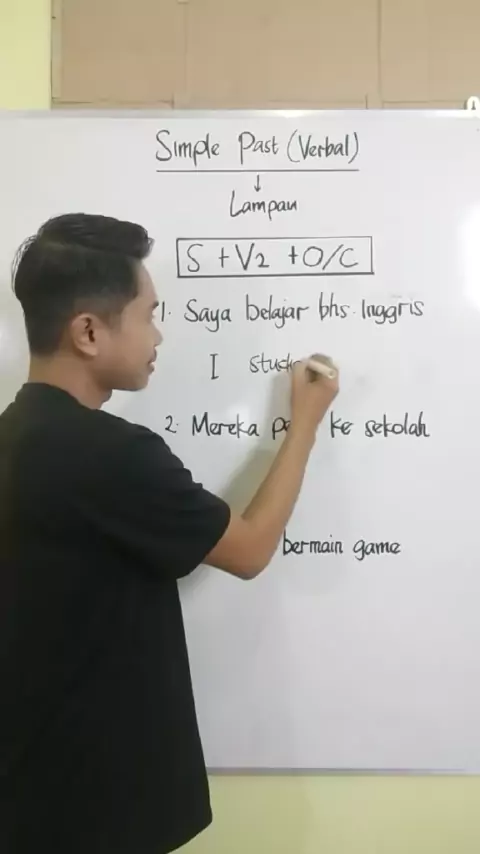 Simple Past (Verbal)
↓
Lampau
S + V2 + O/C
1. Saya belajar bhs. Inggris
I
2. Mereka ke sekolah
bermain game